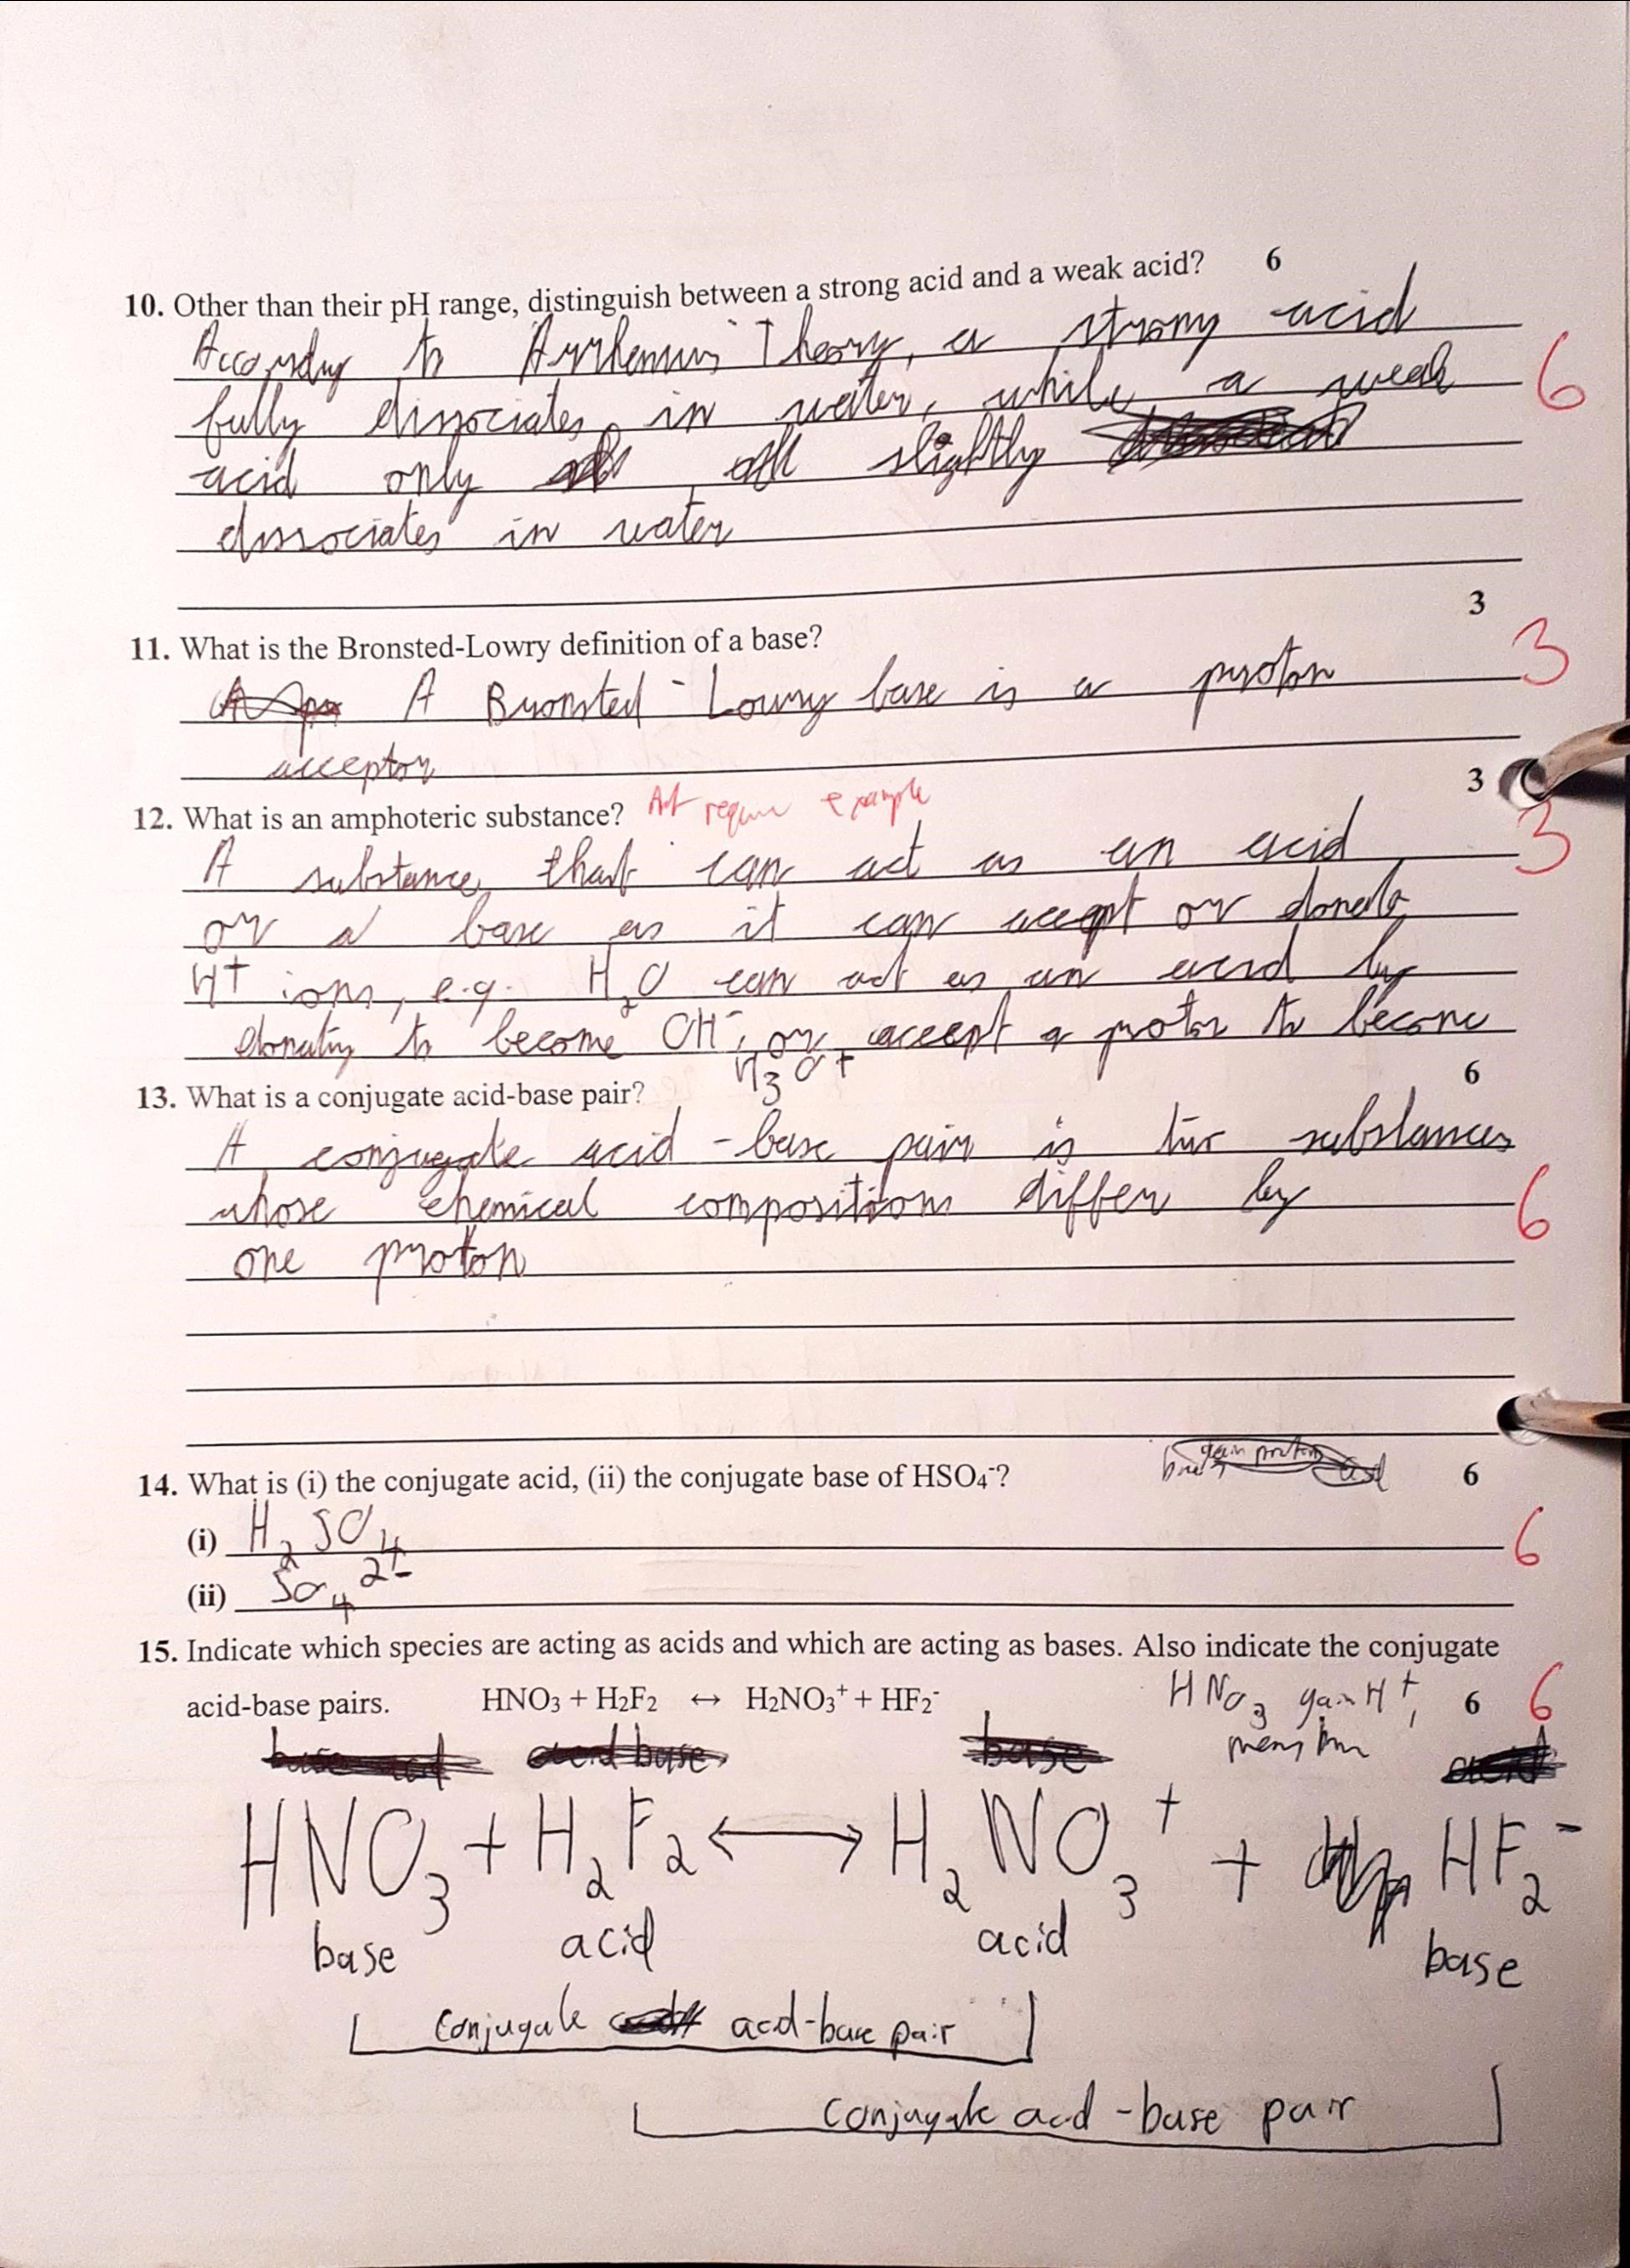 10. Other than their pH range, distinguish between a strong acid and a weak acid? 6
According to Arrhenius Theory, a strong acid
fully dissociates in water, while a weak 6
acid only slightly
dissociates in water
3
11. What is the Bronsted-Lowry definition of a base? 3
A Bronsted-Lowry base is a proton
acceptor
3
12. What is an amphoteric substance? require example 3
A substance that can act as an acid
or a base as it can accept or donate
H+ ions, e.g. H₂O can act as an acid by
donating to become OH⁻, or accept a proton to become
H₃O⁺
6
13. What is a conjugate acid-base pair?
A conjugate acid-base pair is two substances
whose chemical compositions differ by 6
one proton
gain proton
14. What is (i) the conjugate acid, (ii) the conjugate base of HSO₄⁻? 6
(i) H₂SO₄ 6
(ii) SO₄²⁻
15. Indicate which species are acting as acids and which are acting as bases. Also indicate the conjugate
acid-base pairs. HNO₃ + H₂F₂ ↔ H₂NO₃⁺ + HF₂⁻ HNO₃ gain H⁺, 6 6
HNO₃ + H₂F₂ ⟷ H₂NO₃⁺ + HF₂⁻
base acid acid base
conjugate acid-base pair
conjugate acid-base pair